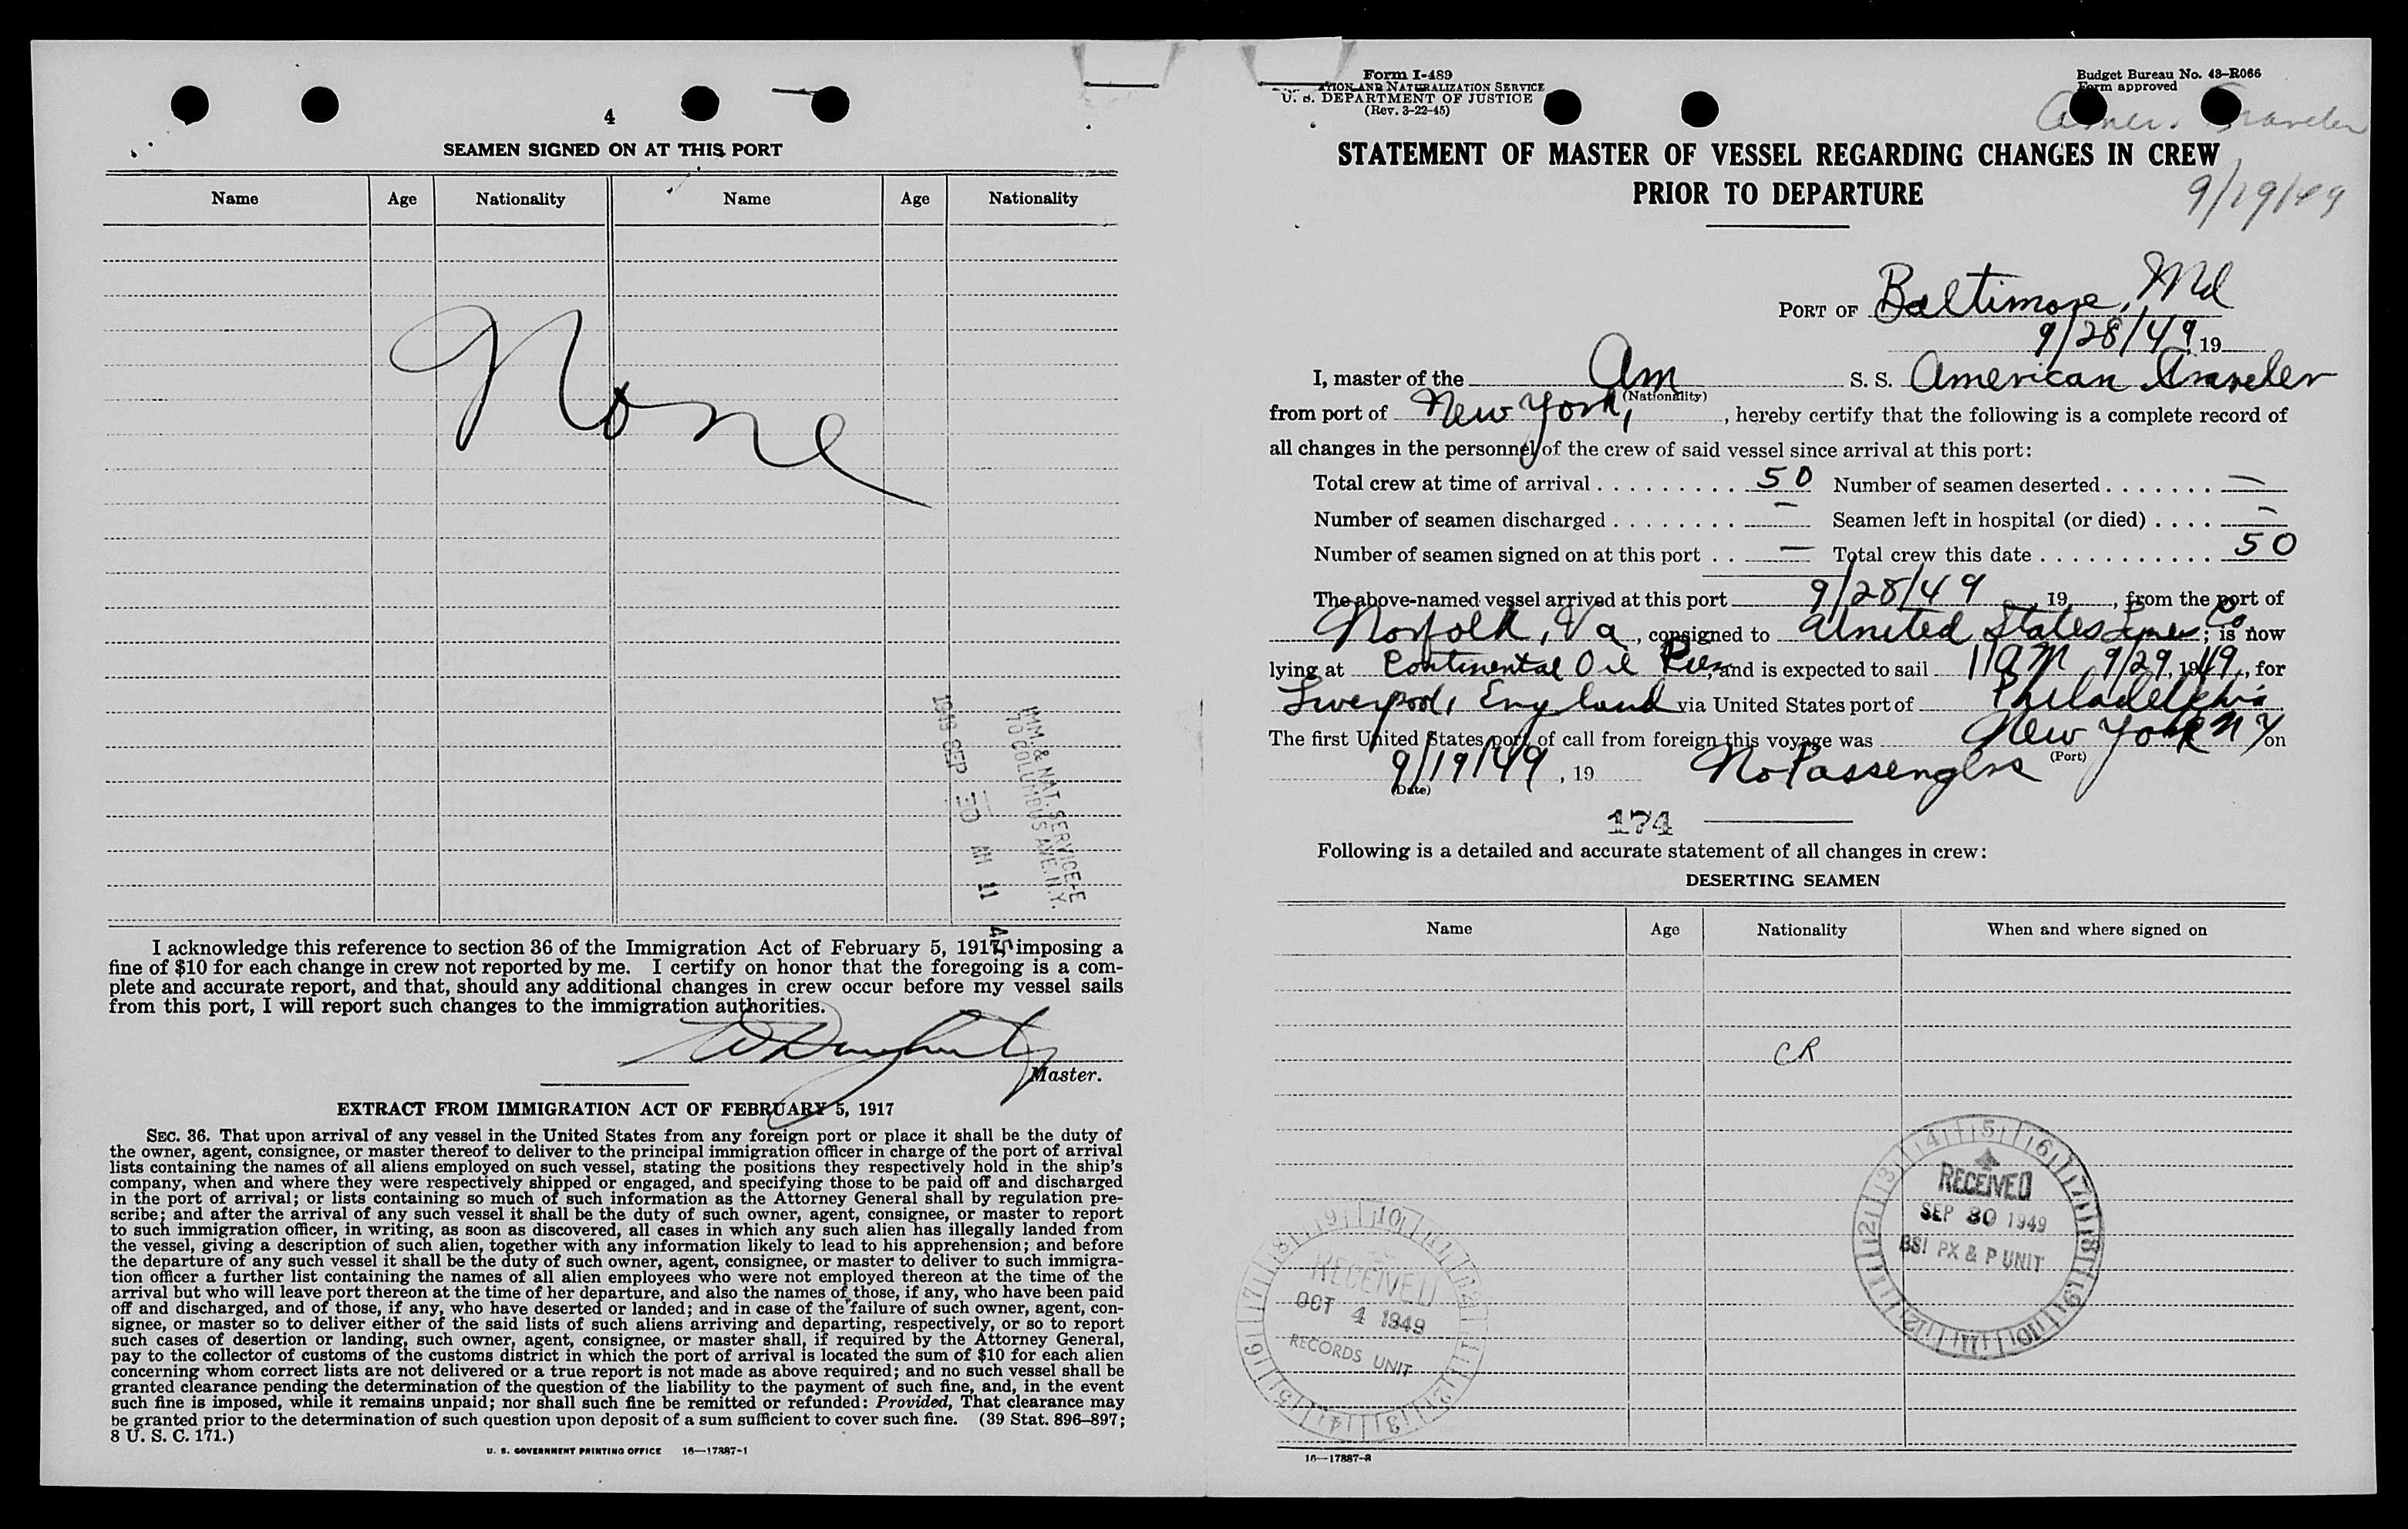 4
SEAMEN SIGNED ON AT THIS PORT
Name Age Nationality Name Age Nationality
None
IMM. & NAT. SERVICE-E
70 COLUMBUS AVE. N.Y.
1949 SEP 30 AM 11 45
I acknowledge this reference to section 36 of the Immigration Act of February 5, 1917, imposing a
fine of $10 for each change in crew not reported by me. I certify on honor that the foregoing is a com-
plete and accurate report, and that, should any additional changes in crew occur before my vessel sails
from this port, I will report such changes to the immigration authorities.
Master.
EXTRACT FROM IMMIGRATION ACT OF FEBRUARY 5, 1917
SEC. 36. That upon arrival of any vessel in the United States from any foreign port or place it shall be the duty of
the owner, agent, consignee, or master thereof to deliver to the principal immigration officer in charge of the port of arrival
lists containing the names of all aliens employed on such vessel, stating the positions they respectively hold in the ship's
company, when and where they were respectively shipped or engaged, and specifying those to be paid off and discharged
in the port of arrival; or lists containing so much of such information as the Attorney General shall by regulation pre-
scribe; and after the arrival of any such vessel it shall be the duty of such owner, agent, consignee, or master to report
to such immigration officer, in writing, as soon as discovered, all cases in which any such alien has illegally landed from
the vessel, giving a description of such alien, together with any information likely to lead to his apprehension; and before
the departure of any such vessel it shall be the duty of such owner, agent, consignee, or master to deliver to such immigra-
tion officer a further list containing the names of all alien employees who were not employed thereon at the time of the
arrival but who will leave port thereon at the time of her departure, and also the names of those, if any, who have been paid
off and discharged, and of those, if any, who have deserted or landed; and in case of the failure of such owner, agent, con-
signee, or master so to deliver either of the said lists of such aliens arriving and departing, respectively, or so to report
such cases of desertion or landing, such owner, agent, consignee, or master shall, if required by the Attorney General,
pay to the collector of customs of the customs district in which the port of arrival is located the sum of $10 for each alien
concerning whom correct lists are not delivered or a true report is not made as above required; and no such vessel shall be
granted clearance pending the determination of the question of the liability to the payment of such fine, and, in the event
such fine is imposed, while it remains unpaid; nor shall such fine be remitted or refunded: Provided, That clearance may
be granted prior to the determination of such question upon deposit of a sum sufficient to cover such fine. (39 Stat. 896–897;
8 U. S. C. 171.)
U. S. GOVERNMENT PRINTING OFFICE 16—17887-1
Form I-489
ATION AND NATURALIZATION SERVICE
U. S. DEPARTMENT OF JUSTICE
(Rev. 3-22-45)
Budget Bureau No. 43–R066
Form approved
Amer. Traveler
9/19/49
STATEMENT OF MASTER OF VESSEL REGARDING CHANGES IN CREW
PRIOR TO DEPARTURE
PORT OF Baltimore, Md
9/28/49, 19
I, master of the Am S. S. American Traveler
(Nationality)
from port of New York, , hereby certify that the following is a complete record of
all changes in the personnel of the crew of said vessel since arrival at this port:
Total crew at time of arrival 50 Number of seamen deserted —
Number of seamen discharged — Seamen left in hospital (or died) —
Number of seamen signed on at this port — Total crew this date 50
The above-named vessel arrived at this port 9/28/49, 19, from the port of
Norfolk, Va, consigned to United States Lines Co; is now
lying at Continental Oil Pier, and is expected to sail 11 AM 9/29, 1949, for
Liverpool, England via United States port of Philadelphia
The first United States port of call from foreign this voyage was New York N Y on
(Port)
9/19/49, 19 No Passengers
(Date)
174
Following is a detailed and accurate statement of all changes in crew:
DESERTING SEAMEN
Name Age Nationality When and where signed on
CR
RECEIVED
SEP 30 1949
BSI PX & P UNIT
RECEIVED
OCT 4 1949
RECORDS UNIT
16—17887-2